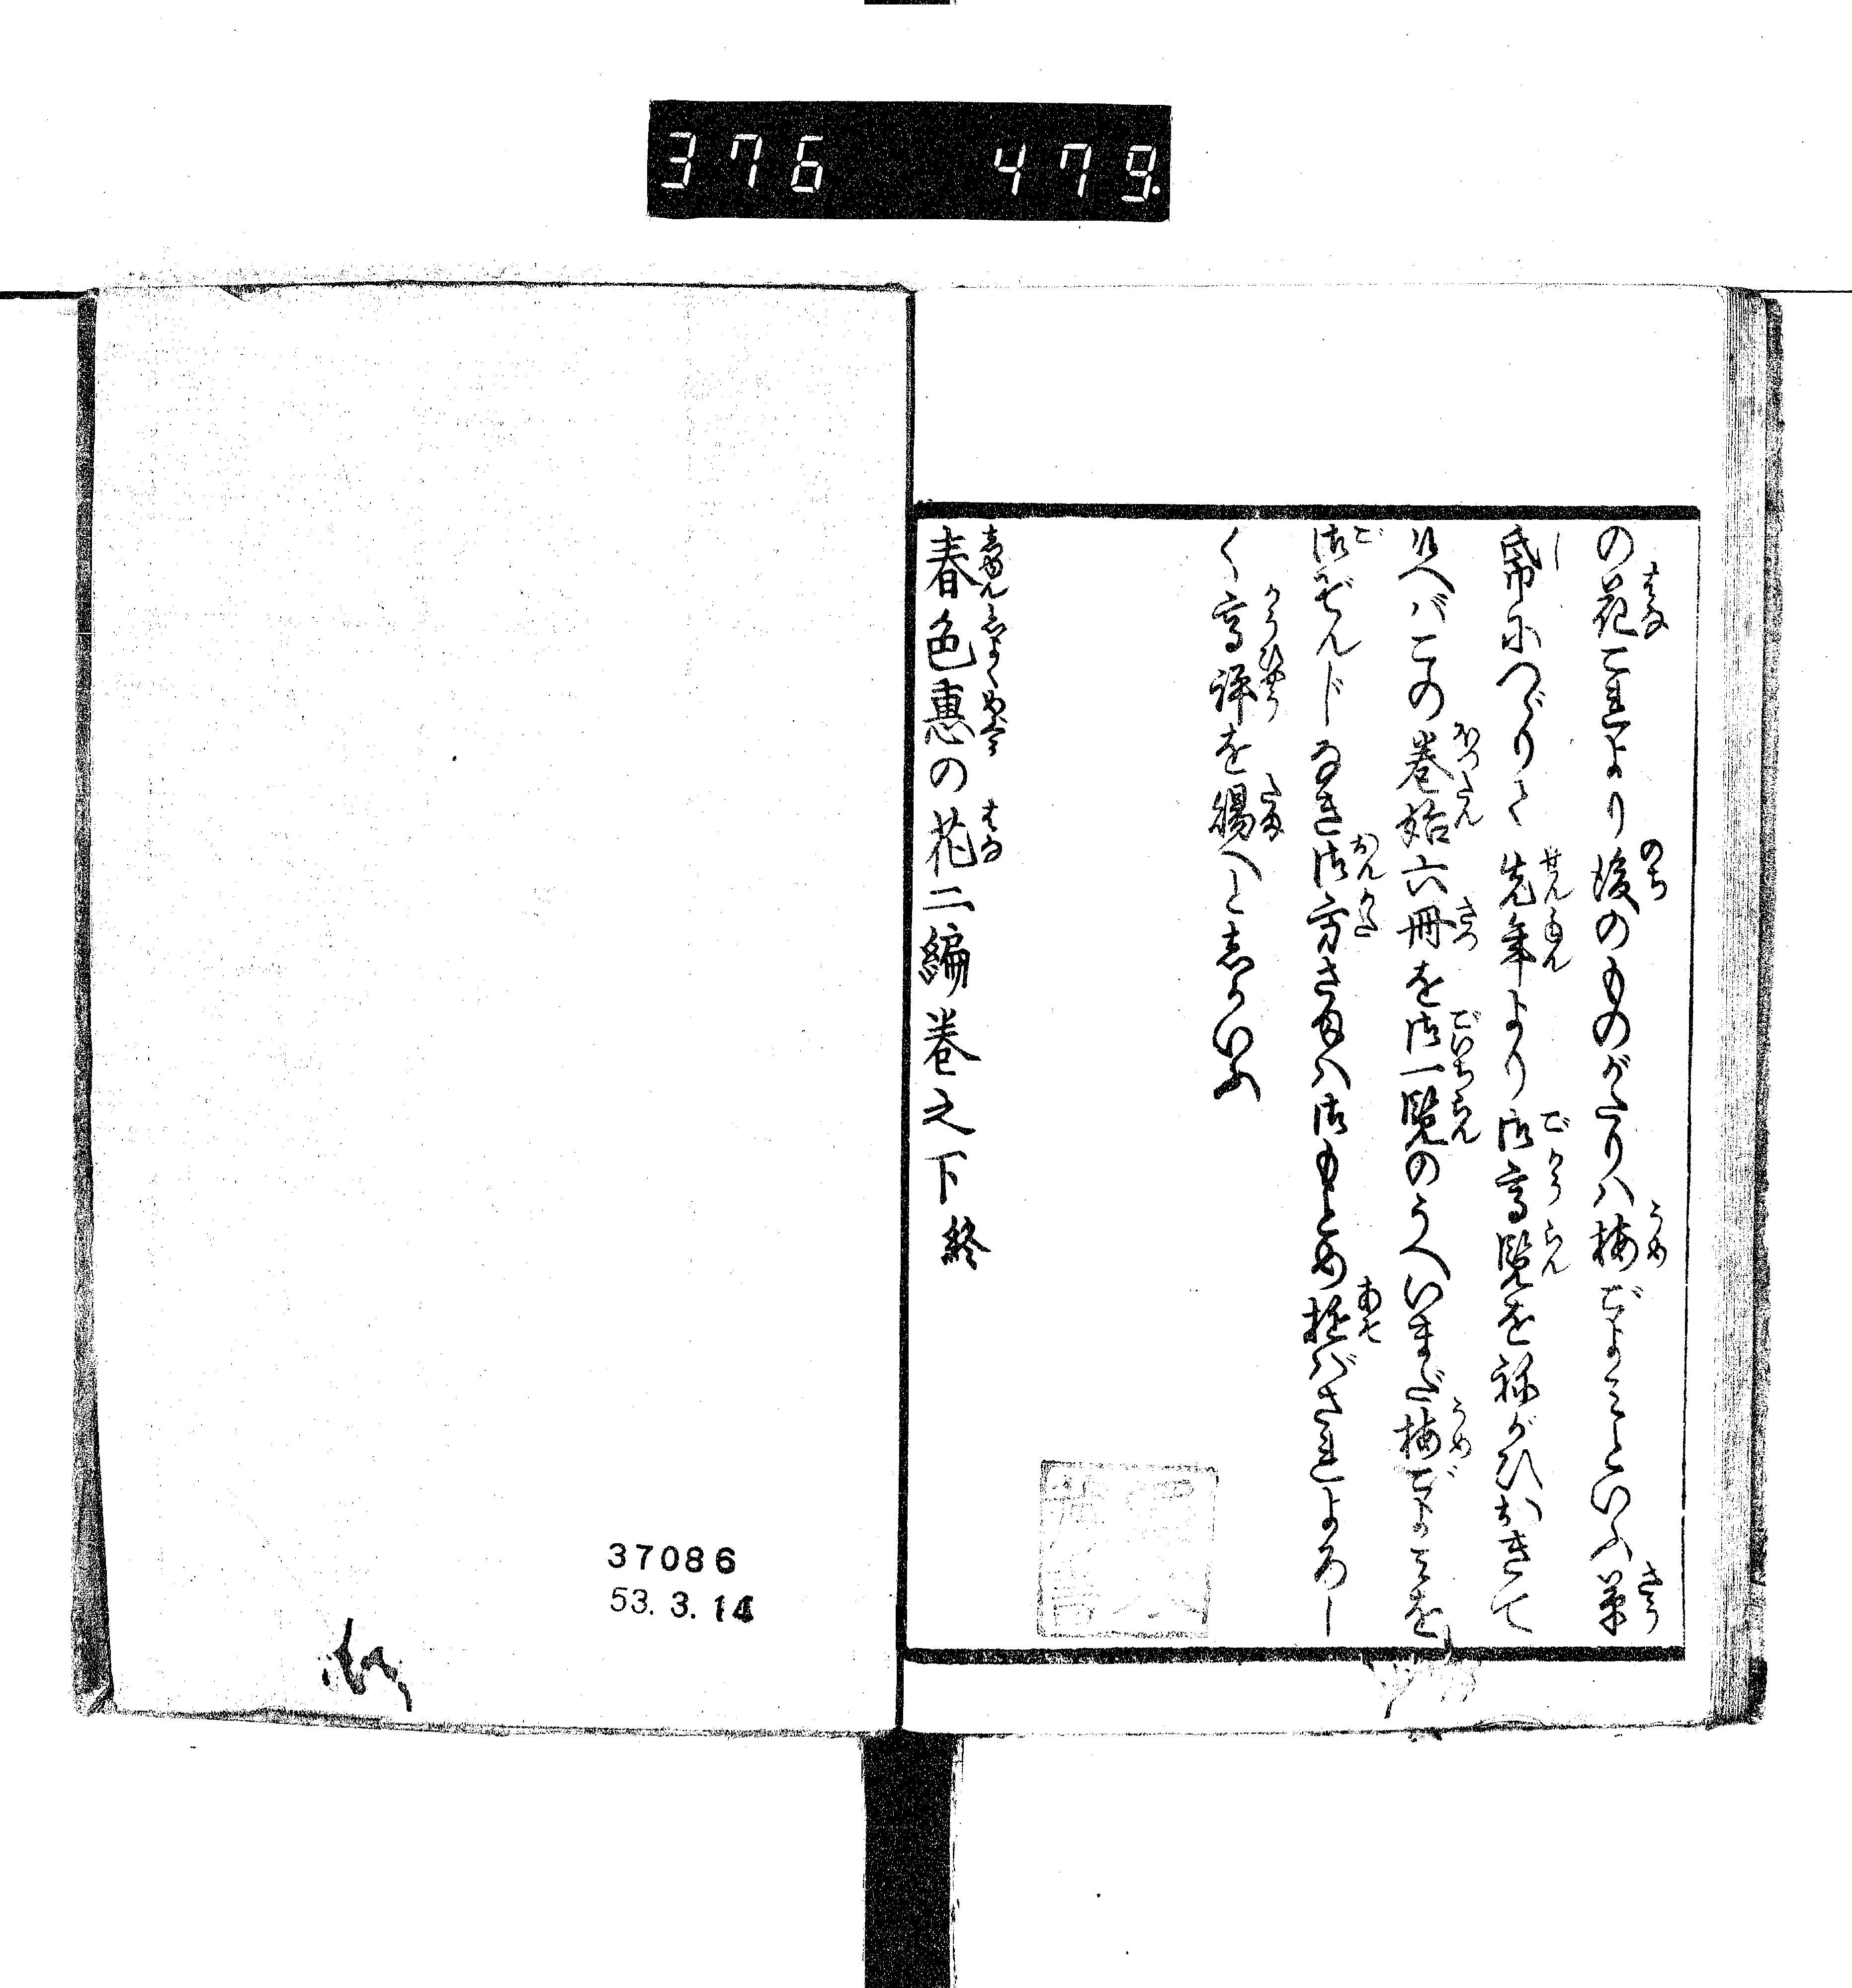 376 479.
の花これより後のものがたりハ梅ごよみといふ草
帋につゞりて先年より御高覧を祢がひおきて
候へバこの発端六冊を御一覧のうへいまだ梅ごよみを
御ぞんじなき御方さまハ御もとめ遊バされよろし
く高評を賜へと志かいふ
春色恵の花二編巻之下終
37086
53.3.14